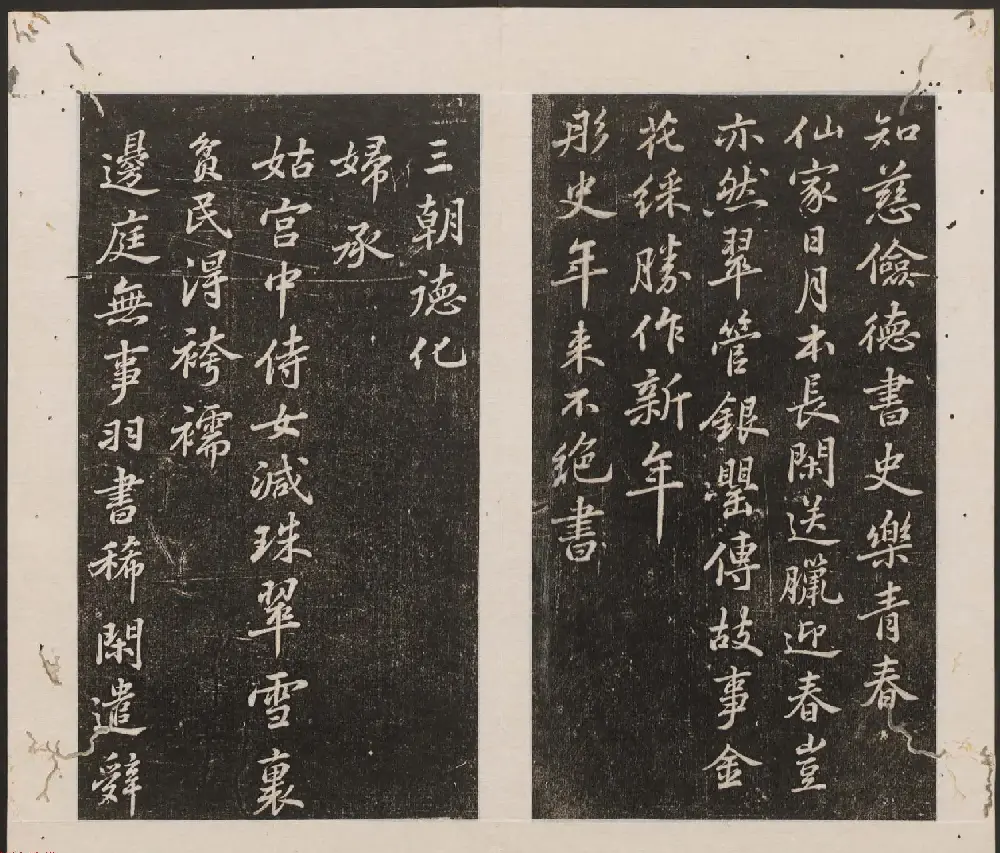 知慈儉德書史樂青春
仙家日月本長閑送臘迎春豈
亦然翠管銀罌傳故事金
花綵勝作新年
彤史年来不絶書
三朝德化
婦承
姑宮中侍女減珠翠雪裏
貧民得袴襦
邊庭無事羽書稀閑遣辭